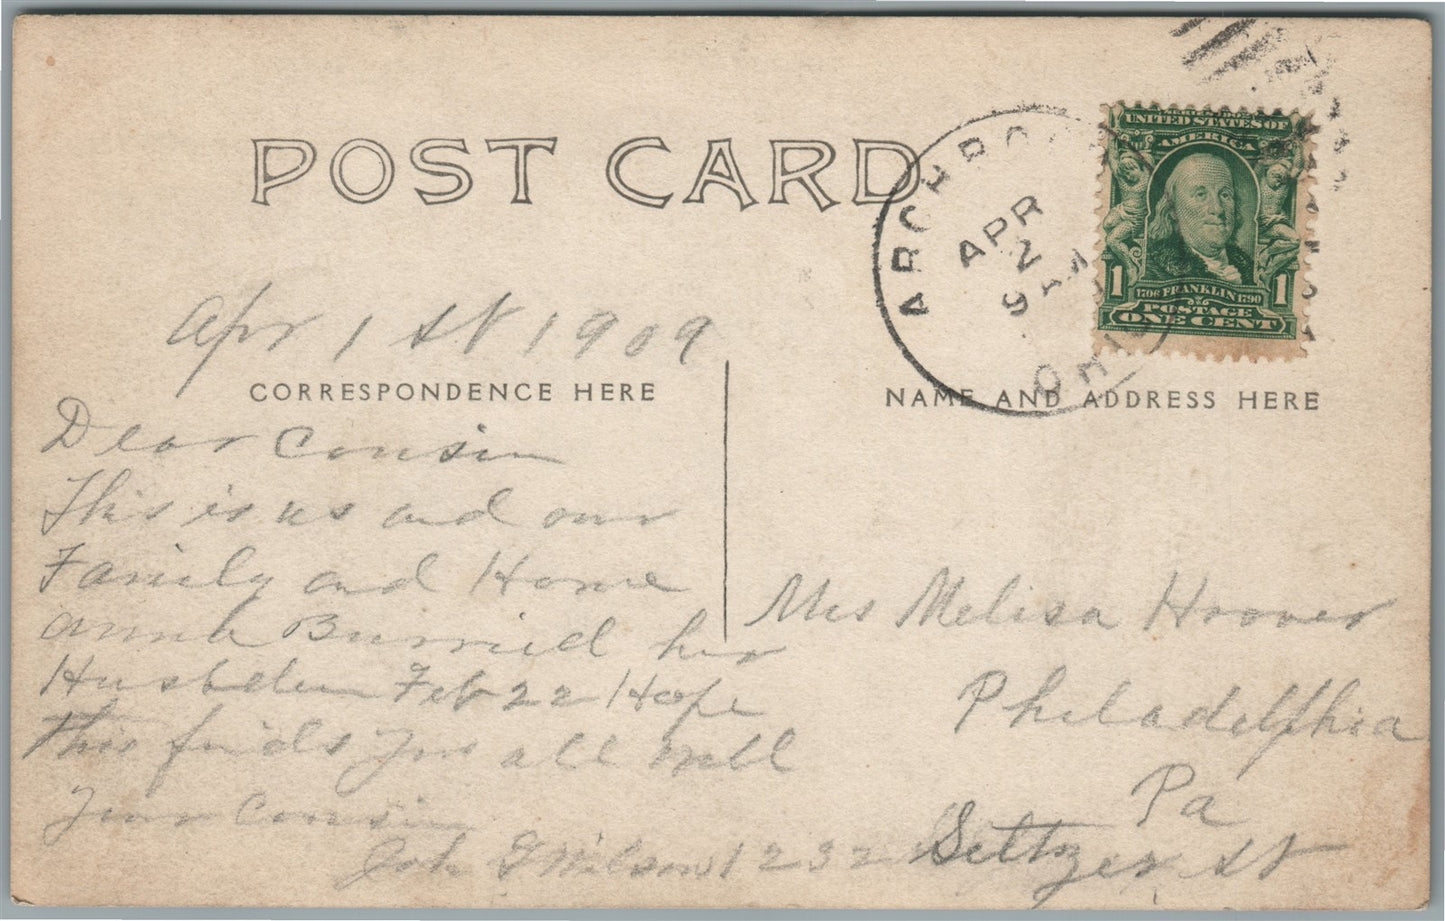 POST CARD
ARCHBO
APR
2
9 AM
OHIO
UNITED STATES OF
AMERICA
1 1
1706 FRANKLIN 1790
POSTAGE
ONE CENT
Apr 1 st 1909
CORRESPONDENCE HERE
NAME AND ADDRESS HERE
Dear Cousin
This is us and our
Family and Home
Burried her
Feb 22 Hope
this finds you all well
your Cousin
Wilson
Mrs Melisa Hoover
Philadelphia
Pa
1232 Seltzer St